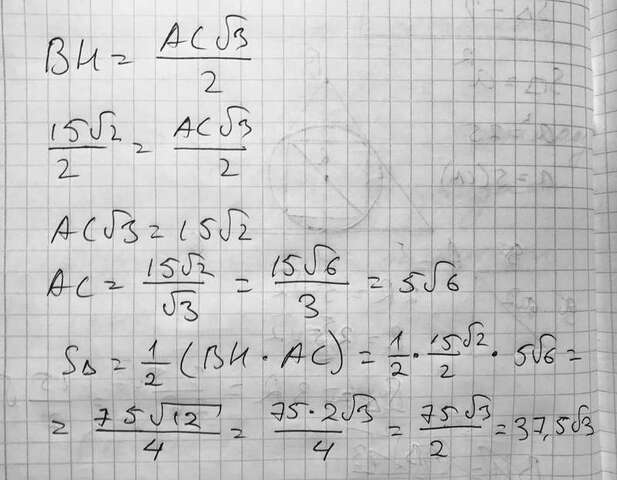 BH = AC√3/2
15√2/2 = AC√3/2
AC√3 = 15√2
AC = 15√2/√3 = 15√6/3 = 5√6
S△ = 1/2 (BH · AC) = 1/2 · 15√2/2 · 5√6 =
= 75√12/4 = 75·2√3/4 = 75√3/2 = 37,5√3